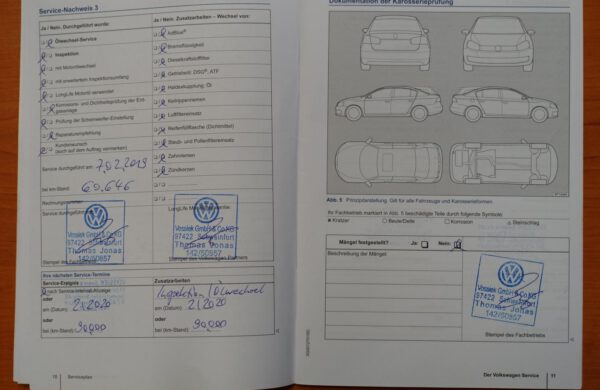 Service-Nachweis 3
Ja / Nein. Durchgeführt wurde:
Ölwechsel-Service
Inspektion
mit Motorölwechsel
mit erweitertem Inspektionsumfang
LongLife Motoröl verwendet
Korrosions- und Dichtheitsprüfung der Erd-
gasanlage
Prüfung der Scheinwerfer-Einstellung
Reparaturempfehlung
Kundenwunsch
(auch auf den Auftrag vermerken)
Service durchgeführt am: 7.02.2019
bei km-Stand: 69.646
Rechnungsnummer:
Service durchgeführt
Vossiek GmbH & Co KG
97422 Schweinfurt
Thomas Jonas
142/50957
Stempel des Fachbetriebs
Ja / Nein. Zusatzarbeiten – Wechsel von:
AdBlue®
Bremsflüssigkeit
Dieselkraftstofffilter
Getriebeöl: DSG®, ATF
Haldexkupplung: Öl
Keilrippenriemen
Luftfiltereinsatz
Reifenfüllflasche (Dichtmittel)
Staub- und Pollenfiltereinsatz
Zahnriemen
Zündkerzen
LongLife Mobilitätsgarantie
Vossiek GmbH & Co KG
97422 Schweinfurt
Thomas Jonas
142/50957
Stempel des Volkswagen Partners
Ihre nächsten Service-Termine
Service-Ereignis
nach Service-Intervall-Anzeige
oder
am (Datum): 2/2020
oder
bei (km-Stand): 90.000
Zusatzarbeiten
Inspektion / Ölwechsel
am (Datum): 2/2020
oder
bei (km-Stand): 90.000
10 Serviceplan
Dokumentation der Karosserieprüfung
Abb. 5 Prinzipdarstellung. Gilt für alle Fahrzeuge und Karosserieformen
Ihr Fachbetrieb markiert in Abb. 5 beschädigte Teile durch folgende Symbole:
Kratzer
Beule/Delle
Korrosion
Steinschlag
Mängel festgestellt?
Ja:
Nein:
Beschreibung der Mängel:
Vossiek GmbH & Co KG
97422 Schweinfurt
Thomas Jonas
142/50957
Stempel des Fachbetriebs
Der Volkswagen Service 11